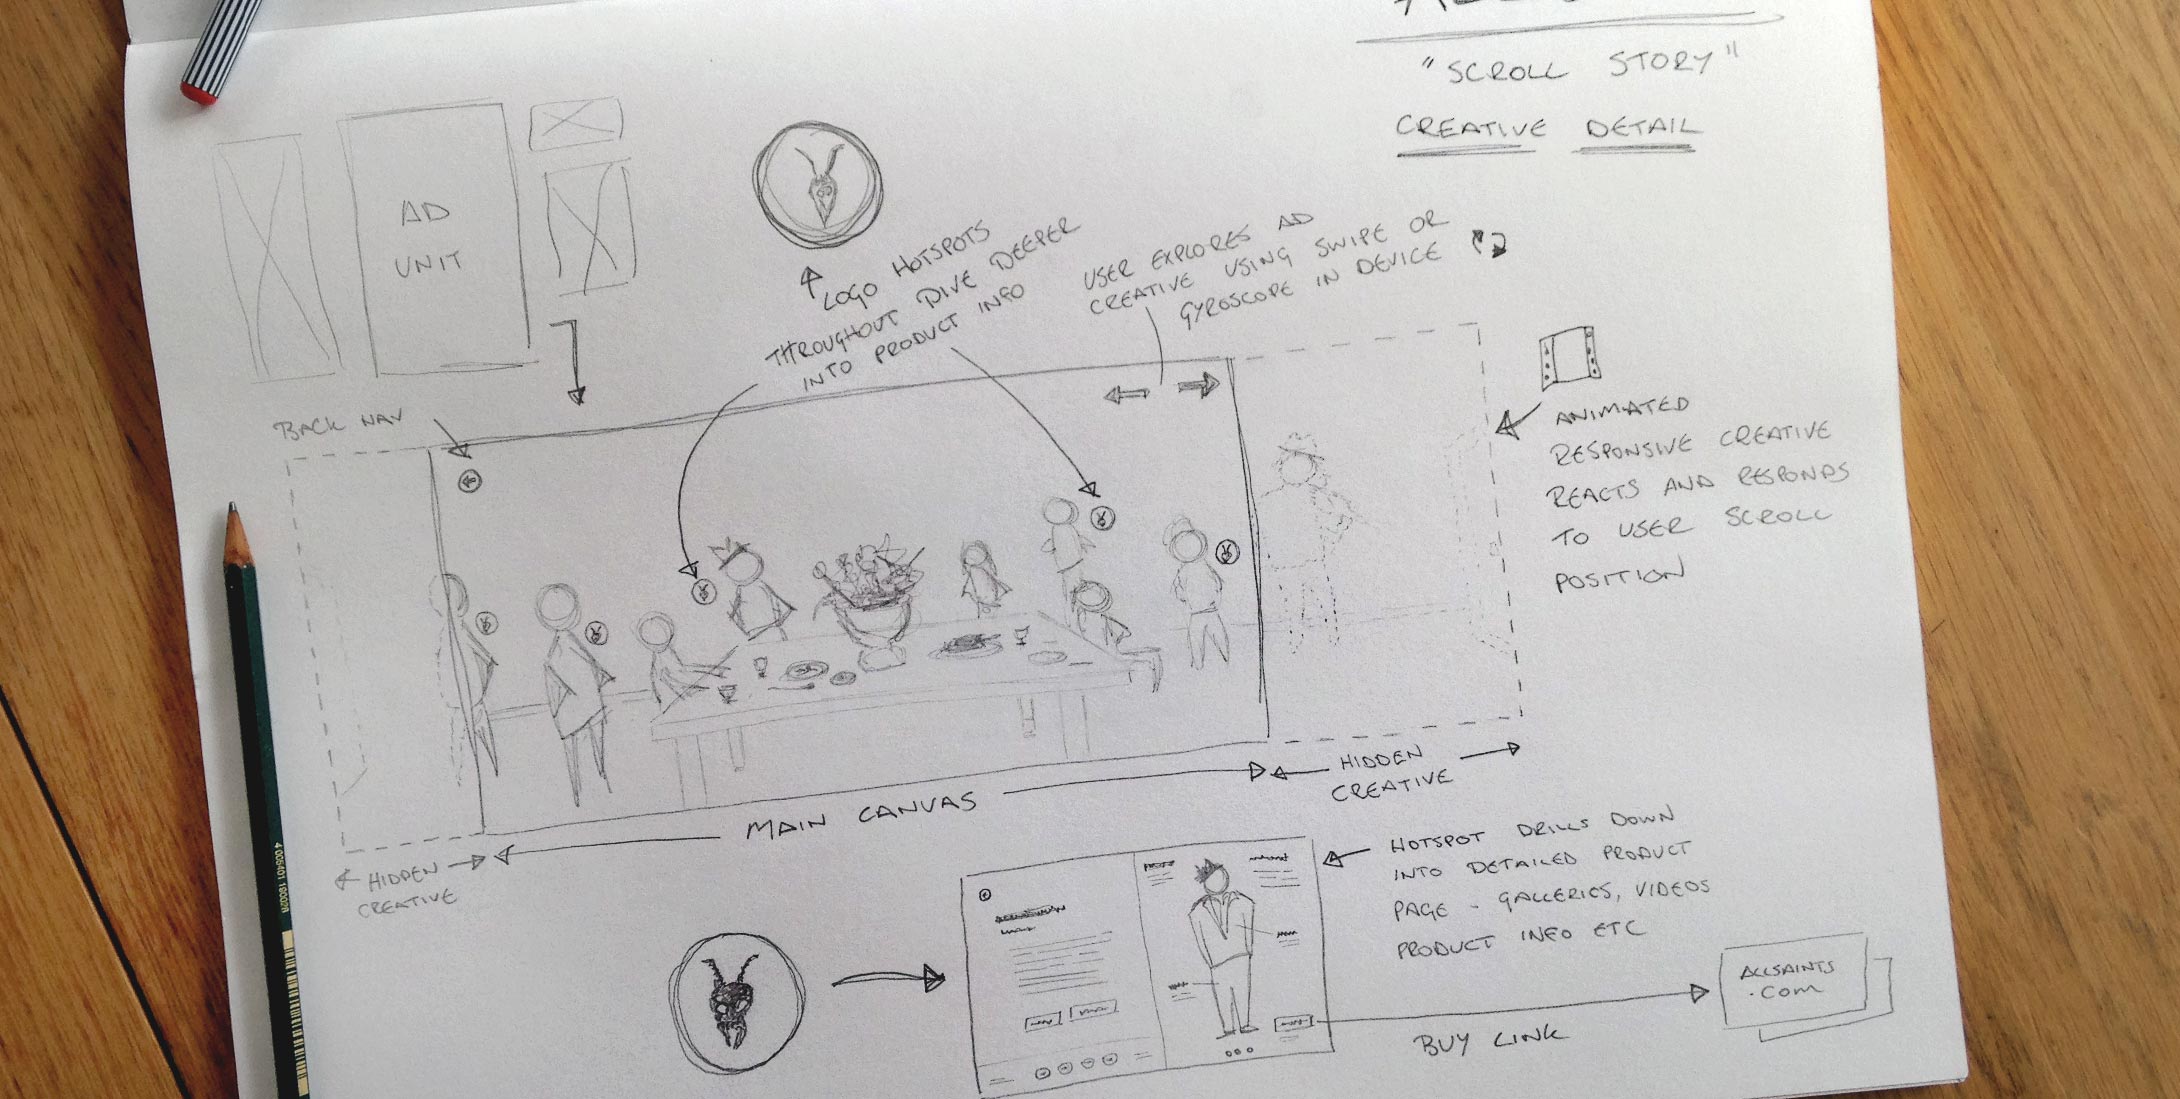 "SCROLL STORY"
CREATIVE DETAIL
AD
UNIT
LOGO HOTSPOTS
THROUGHOUT DIVE DEEPER
INTO PRODUCT INFO
USER EXPLORES AD
CREATIVE USING SWIPE OR
GYROSCOPE IN DEVICE
BACK NAV
ANIMATED
RESPONSIVE CREATIVE
REACTS AND RESPONDS
TO USER SCROLL
POSITION
HIDDEN
CREATIVE
MAIN CANVAS
HIDDEN
CREATIVE
HOTSPOT DRILLS DOWN
INTO DETAILED PRODUCT
PAGE - GALLERIES, VIDEOS
PRODUCT INFO ETC
ALLSAINTS
.COM
BUY LINK